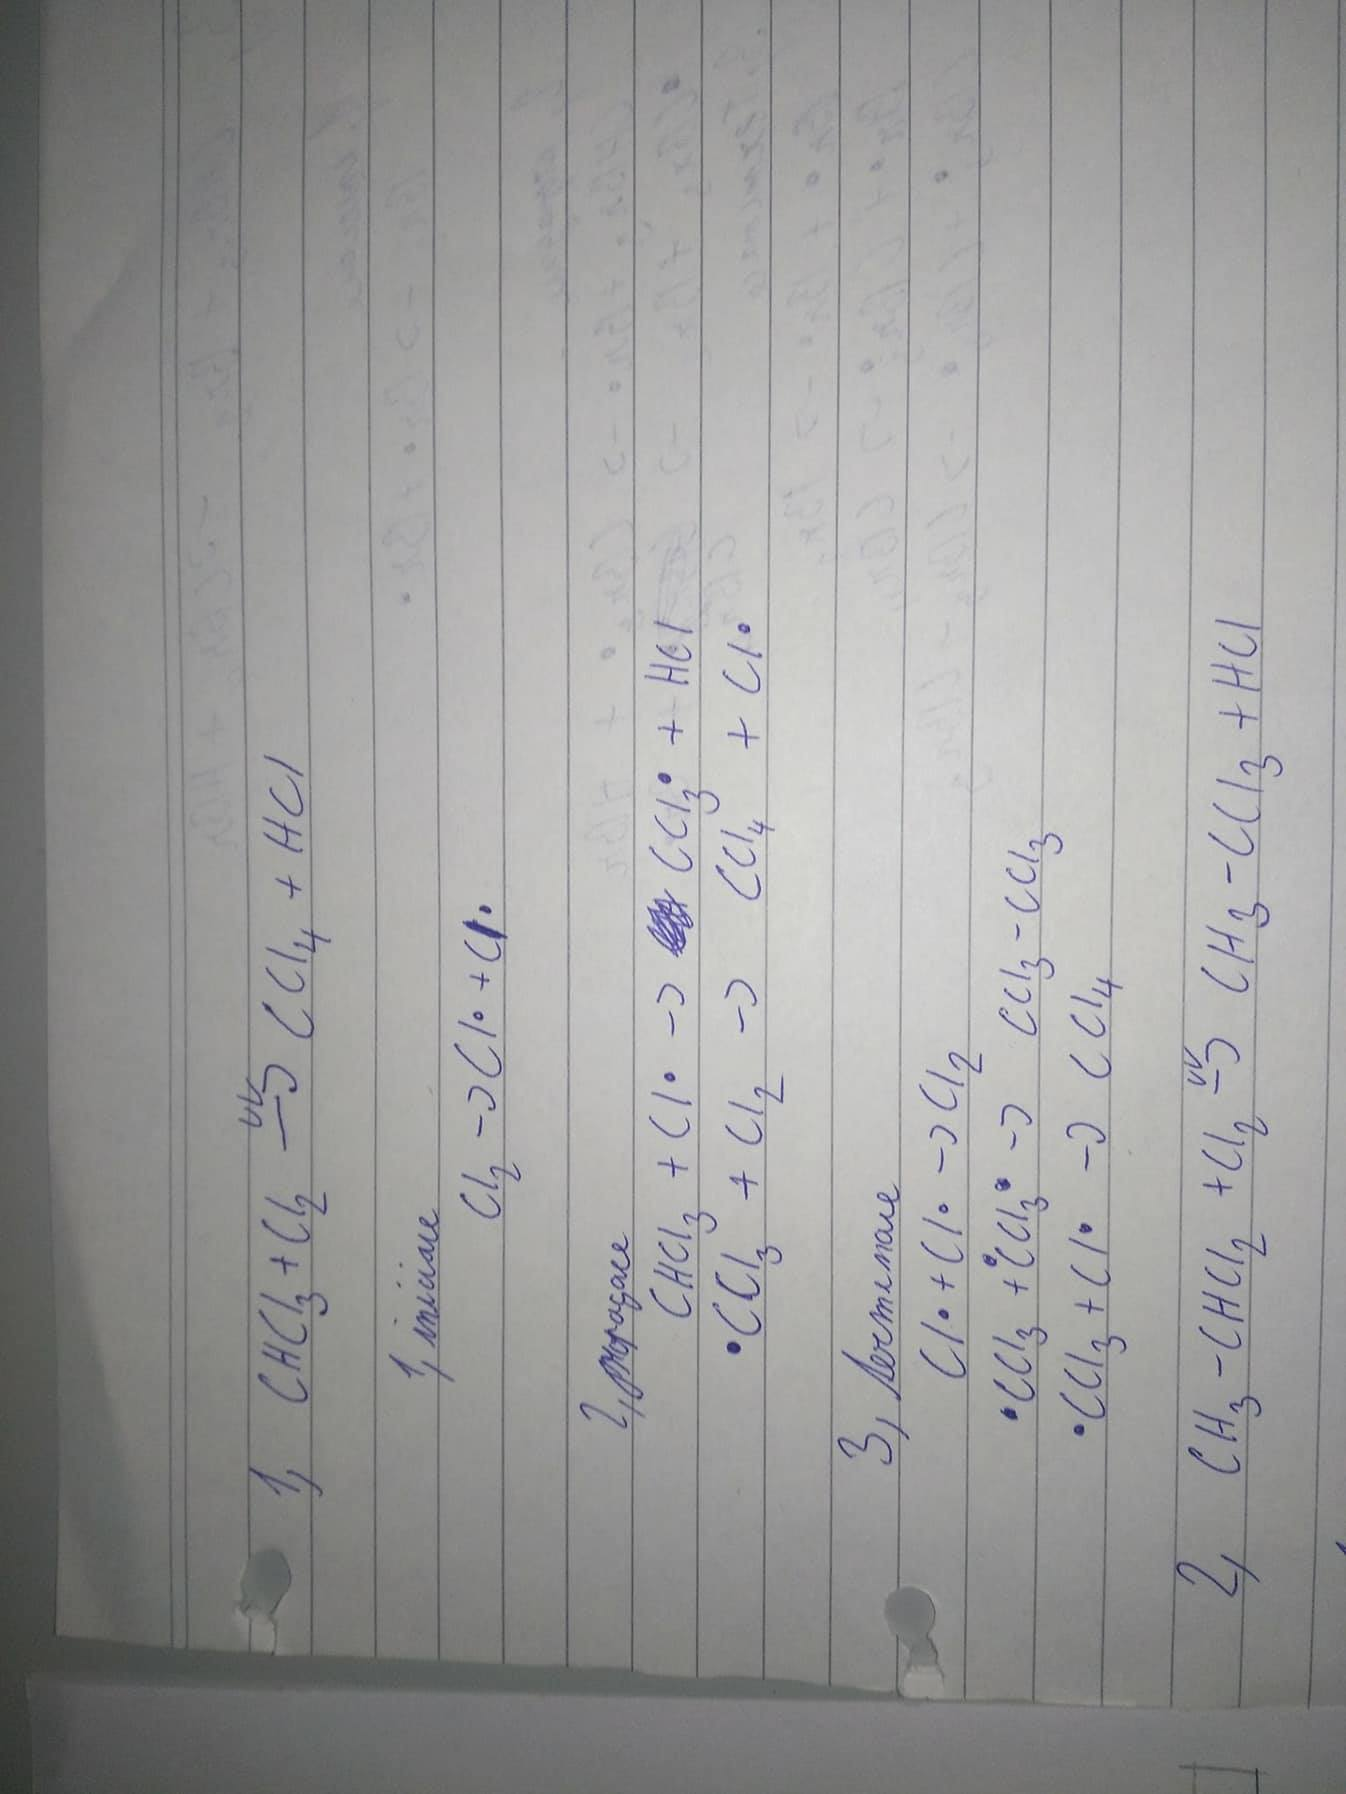 1, CHCl₃ + Cl₂ –UV→ CCl₄ + HCl
1, iniciace
Cl₂ → Cl• + Cl•
2, propagace
CHCl₃ + Cl• → CCl₃• + HCl
•CCl₃ + Cl₂ → CCl₄ + Cl•
3, terminace
Cl• + Cl• → Cl₂
•CCl₃ + •CCl₃• → CCl₃-CCl₃
•CCl₃ + Cl• → CCl₄
2, CH₃-CHCl₂ + Cl₂ –UV→ CH₃-CCl₃ + HCl